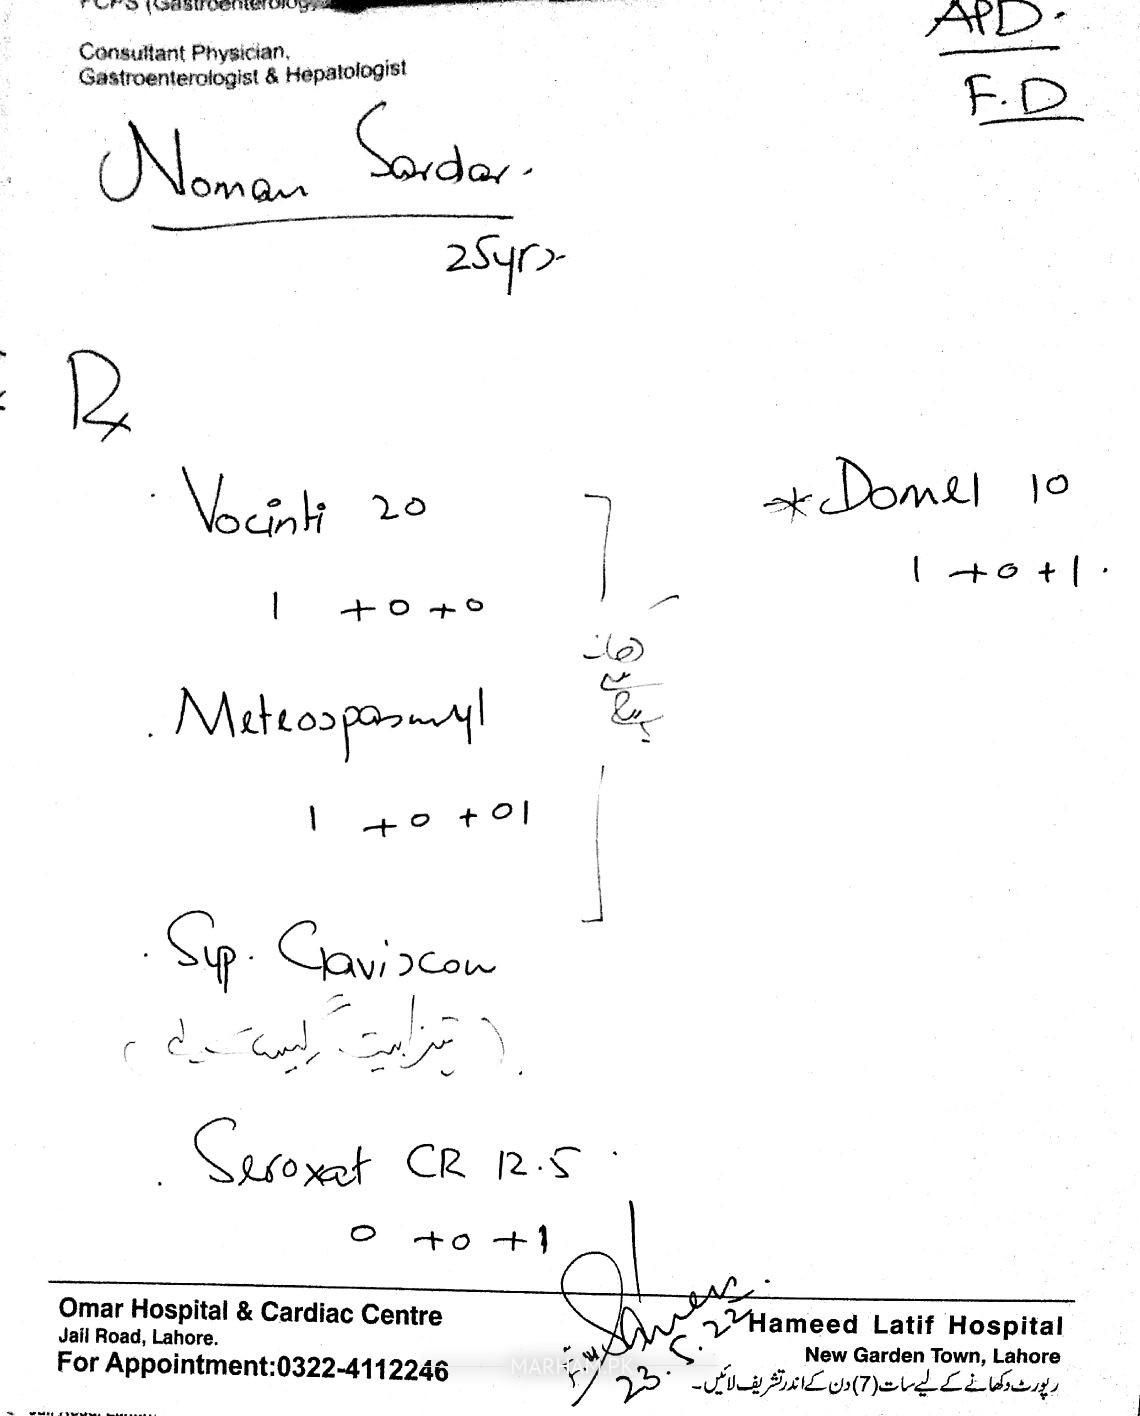 FCPS (Gastroenterology)
Consultant Physician,
Gastroenterologist & Hepatologist
APD.
F.D
Noman Sardar.
25yrs
Rx
Vocinti 20
1 + 0 + 0
* Domel 10
1 + 0 + 1.
کھانے
سے
پہلے
. Meteospasmyl
1 + 0 + 01
. Syp. Gaviscon
. Seroxat CR 12.5
0 + 0 + 1
23.5.22
Omar Hospital & Cardiac Centre
Jail Road, Lahore.
For Appointment:0322-4112246
MARHAM.PK
Hameed Latif Hospital
New Garden Town, Lahore
رپورٹ دکھانے کے لیے سات (7) دن کے اندر تشریف لائیں۔